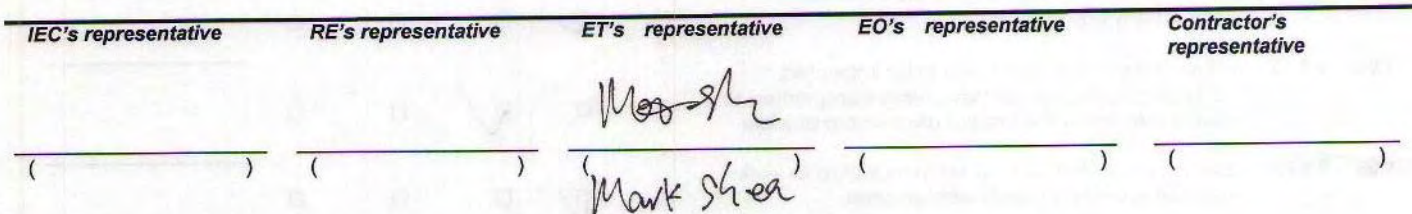 IEC's representative RE's representative ET's representative EO's representative Contractor's representative
( ) ( ) ( ) ( ) ( )
Mark Shea